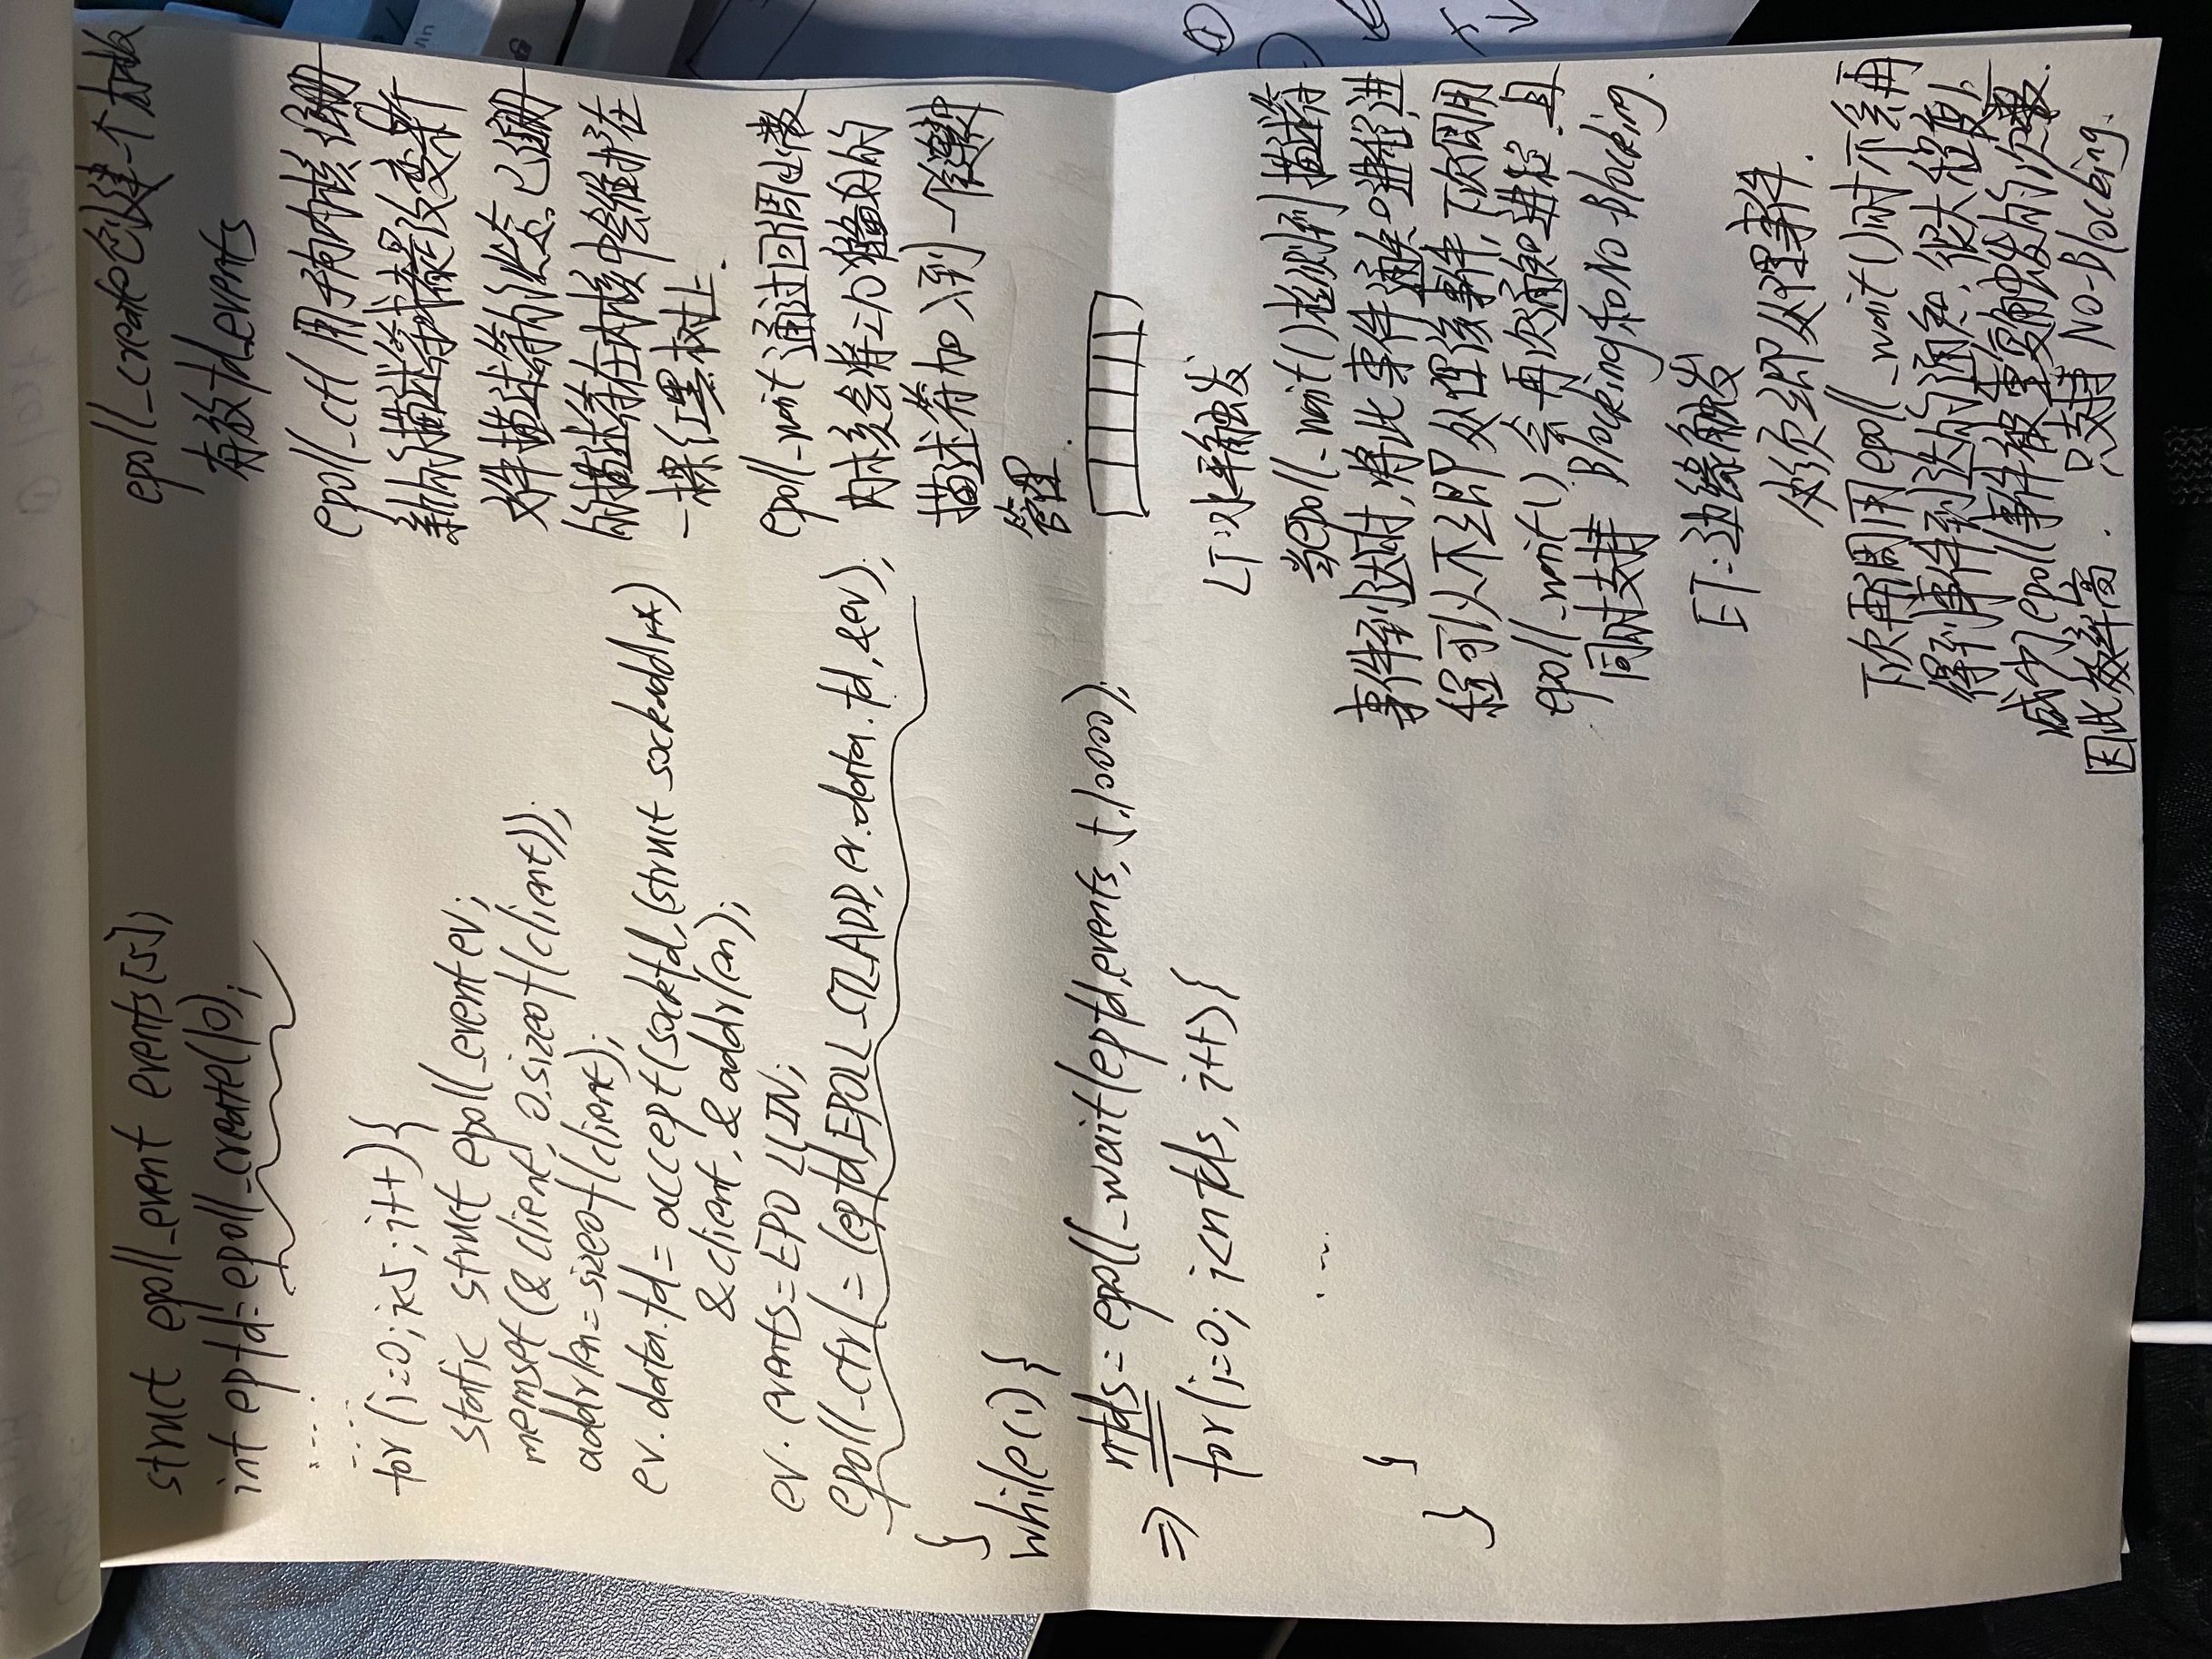 struct epoll_event events[5];
int epfd=epoll_create(10);
.....
.....
for(i=0;i<5;i++){
static struct epoll_event ev;
memset(&client, 0.sizeof(client));
addrlen=sizeof(client);
ev.data.fd=accept(sockfd,(struct sockaddr*)
&client,&addrlen);
ev.events=EPOLLIN;
epoll_ctrl=(epfd,EPOLL_CTL_ADD,ev.data.fd,&ev);
}
while(1){
nfds=epoll_wait(epfd,events,5,10000);
⇒
for(i=0; i<nfds, i++){
....
}
}
epoll_create创建一个
存放fd_events
epoll_ctl 用于向内核注册
新的描述符或者是改变某个
文件描述符的状态.已注册
的描述符在内核中会维护在
一棵红黑树上.
epoll_wait通过回调函数
内核会将I/O准备好的
描述符加入到一个链表中
管理.
LT:水平触发
当epoll_wait()检测到描述符
事件到达时,将此事件通知进程,进
程可以不立即处理该事件,下次调用
epoll_wait()会再次通知进程.且
同时支持 Blocking和No-Blocking.
ET:边缘触发
必须立即处理事件.
下次再调用epoll_wait()时不会再
得到事件到达的通知.很大程度上
减少了epoll事件被重复触发的次数.
因此效率高. 只支持No-Blocking.